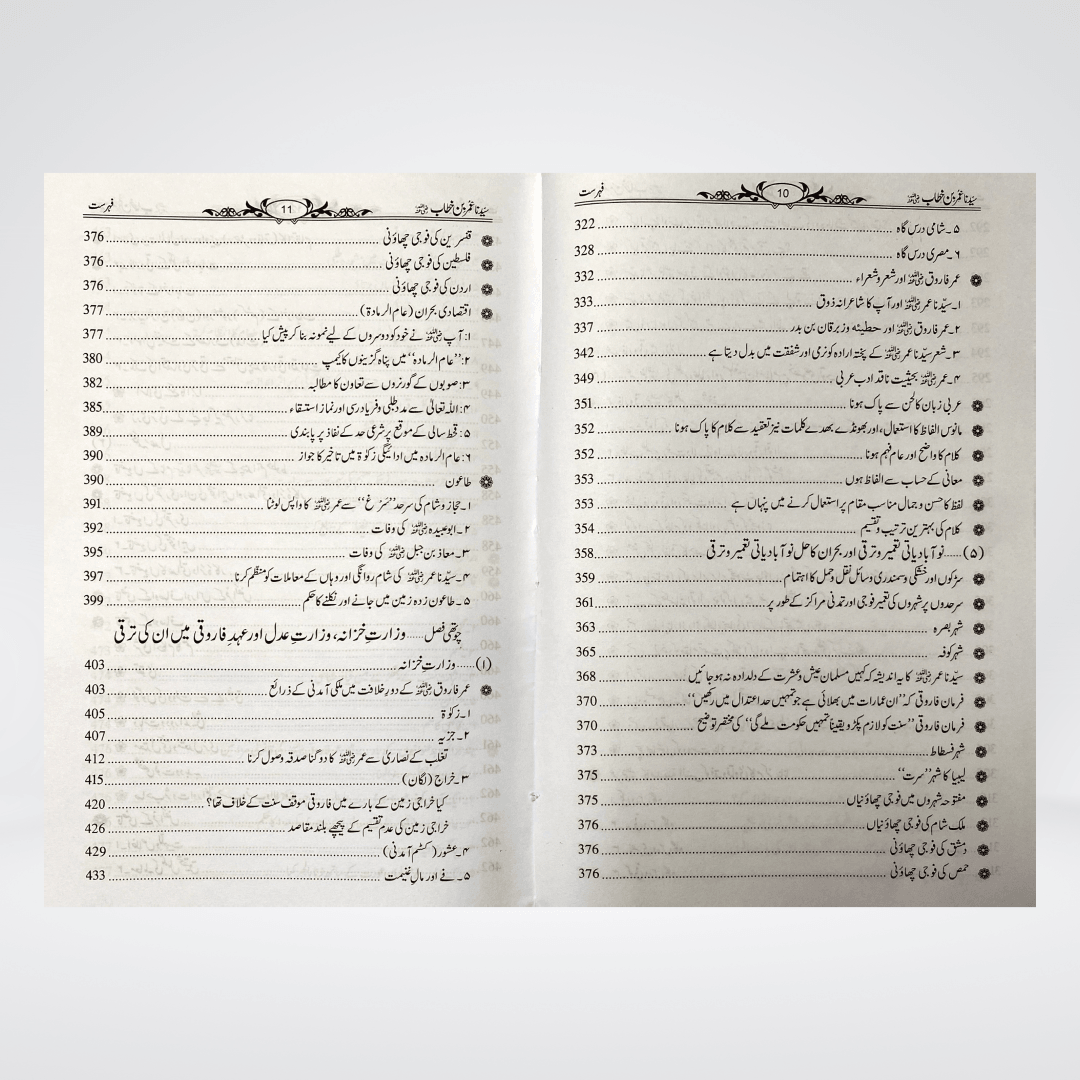 سیّدنا عمر بن خطاب رضی اللہ عنہ 10 فہرست
۵۔ شامی درس گاہ 322
۶۔ مصری درس گاہ 328
❁ عمر فاروق رضی اللہ عنہ اور شعر و شعراء 332
۱۔ سیّدنا عمر رضی اللہ عنہ اور آپ کا شاعرانہ ذوق 333
۲۔ عمر فاروق رضی اللہ عنہ اور حطیئہ و زبرقان بن بدر 337
۳۔ شعر سیّدنا عمر رضی اللہ عنہ کے پختہ ارادہ کو نرمی اور شفقت میں بدل دیتا ہے 342
۴۔ عمر رضی اللہ عنہ بحیثیت ناقد ادب عربی 349
❁ عربی زبان کا لحن سے پاک ہونا 351
❁ مانوس الفاظ کا استعمال، اور بھونڈے بھدے کلمات نیز تعقید سے کلام کا پاک ہونا 352
❁ کلام کا واضح اور عام فہم ہونا 352
❁ معانی کے حساب سے الفاظ ہوں 353
❁ لفظ کا حسن و جمال مناسب مقام پر استعمال کرنے میں پنہاں ہے 353
❁ کلام کی بہترین ترتیب و تقسیم 354
(۵)..... نوآبادیاتی تعمیر و ترقی اور بحران کا حل نوآبادیاتی تعمیر و ترقی 358
❁ سڑکوں اور خشکی و سمندری وسائل نقل و حمل کا اہتمام 359
❁ سرحدوں پر شہروں کی تعمیر فوجی اور تمدنی مراکز کے طور پر 361
❁ شہر بصرہ 363
❁ شہر کوفہ 365
❁ سیّدنا عمر رضی اللہ عنہ کا یہ اندیشہ کہ کہیں مسلمان عیش و عشرت کے دلدادہ نہ ہو جائیں 368
❁ فرمان فاروقی کہ ’’ان عمارات میں بھلائی ہے جو تمہیں حد اعتدال میں رکھیں‘‘ 370
❁ فرمان فاروقی ’’سنت کو لازم پکڑو یقیناً تمہیں حکومت ملے گی‘‘ کی مختصر توضیح 370
❁ شہر فسطاط 373
❁ لیبیا کا شہر ’’سرت‘‘ 375
❁ مفتوحہ شہروں میں فوجی چھاؤنیاں 375
❁ ملک شام کی فوجی چھاؤنیاں 376
❁ دمشق کی فوجی چھاؤنی 376
❁ حمص کی فوجی چھاؤنی 376
سیّدنا عمر بن خطاب رضی اللہ عنہ 11 فہرست
❁ قنسرین کی فوجی چھاؤنی 376
❁ فلسطین کی فوجی چھاؤنی 376
❁ اردن کی فوجی چھاؤنی 376
❁ اقتصادی بحران (عام الرمادۃ) 377
۱: آپ رضی اللہ عنہ نے خود کو دوسروں کے لیے نمونہ بنا کر پیش کیا 377
۲: ’’عام الرمادہ‘‘ میں پناہ گزینوں کا کیمپ 380
۳: صوبوں کے گورنروں سے تعاون کا مطالبہ 382
۴: اللہ تعالیٰ سے مدد طلبی و فریاد رسی اور نماز استسقاء 385
۵: قحط سالی کے موقع پر شرعی حد کے نفاذ پر پابندی 389
۶: عام الرمادہ میں ادائیگی زکوٰۃ میں تاخیر کا جواز 390
❁ طاعون 390
۱۔ حجاز و شام کی سرحد ’’سَرْغ‘‘ سے عمر رضی اللہ عنہ کا واپس لوٹنا 391
۲۔ ابوعبیدہ رضی اللہ عنہ کی وفات 392
۳۔ معاذ بن جبل رضی اللہ عنہ کی وفات 395
۴۔ سیّدنا عمر رضی اللہ عنہ کی شام روانگی اور وہاں کے معاملات کو منظم کرنا 397
۵۔ طاعون زدہ زمین میں جانے اور نکلنے کا حکم 399
چوتھی فصل ..... وزارتِ خزانہ، وزارتِ عدل اور عہدِ فاروقی میں ان کی ترقی
(۱)..... وزارتِ خزانہ 403
❁ عمر فاروق رضی اللہ عنہ کے دورِ خلافت میں ملکی آمدنی کے ذرائع 403
۱۔ زکوٰۃ 405
۲۔ جزیہ 407
تغلب کے نصاریٰ سے عمر رضی اللہ عنہ کا دوگنا صدقہ وصول کرنا 412
۳۔ خراج (لگان) 415
کیا خراجی زمین کے بارے میں فاروقی موقف سنت کے خلاف تھا؟ 420
خراجی زمین کی عدم تقسیم کے پیچھے بلند مقاصد 426
۴۔ عشور (کسٹم آمدنی) 429
۵۔ فے اور مالِ غنیمت 433